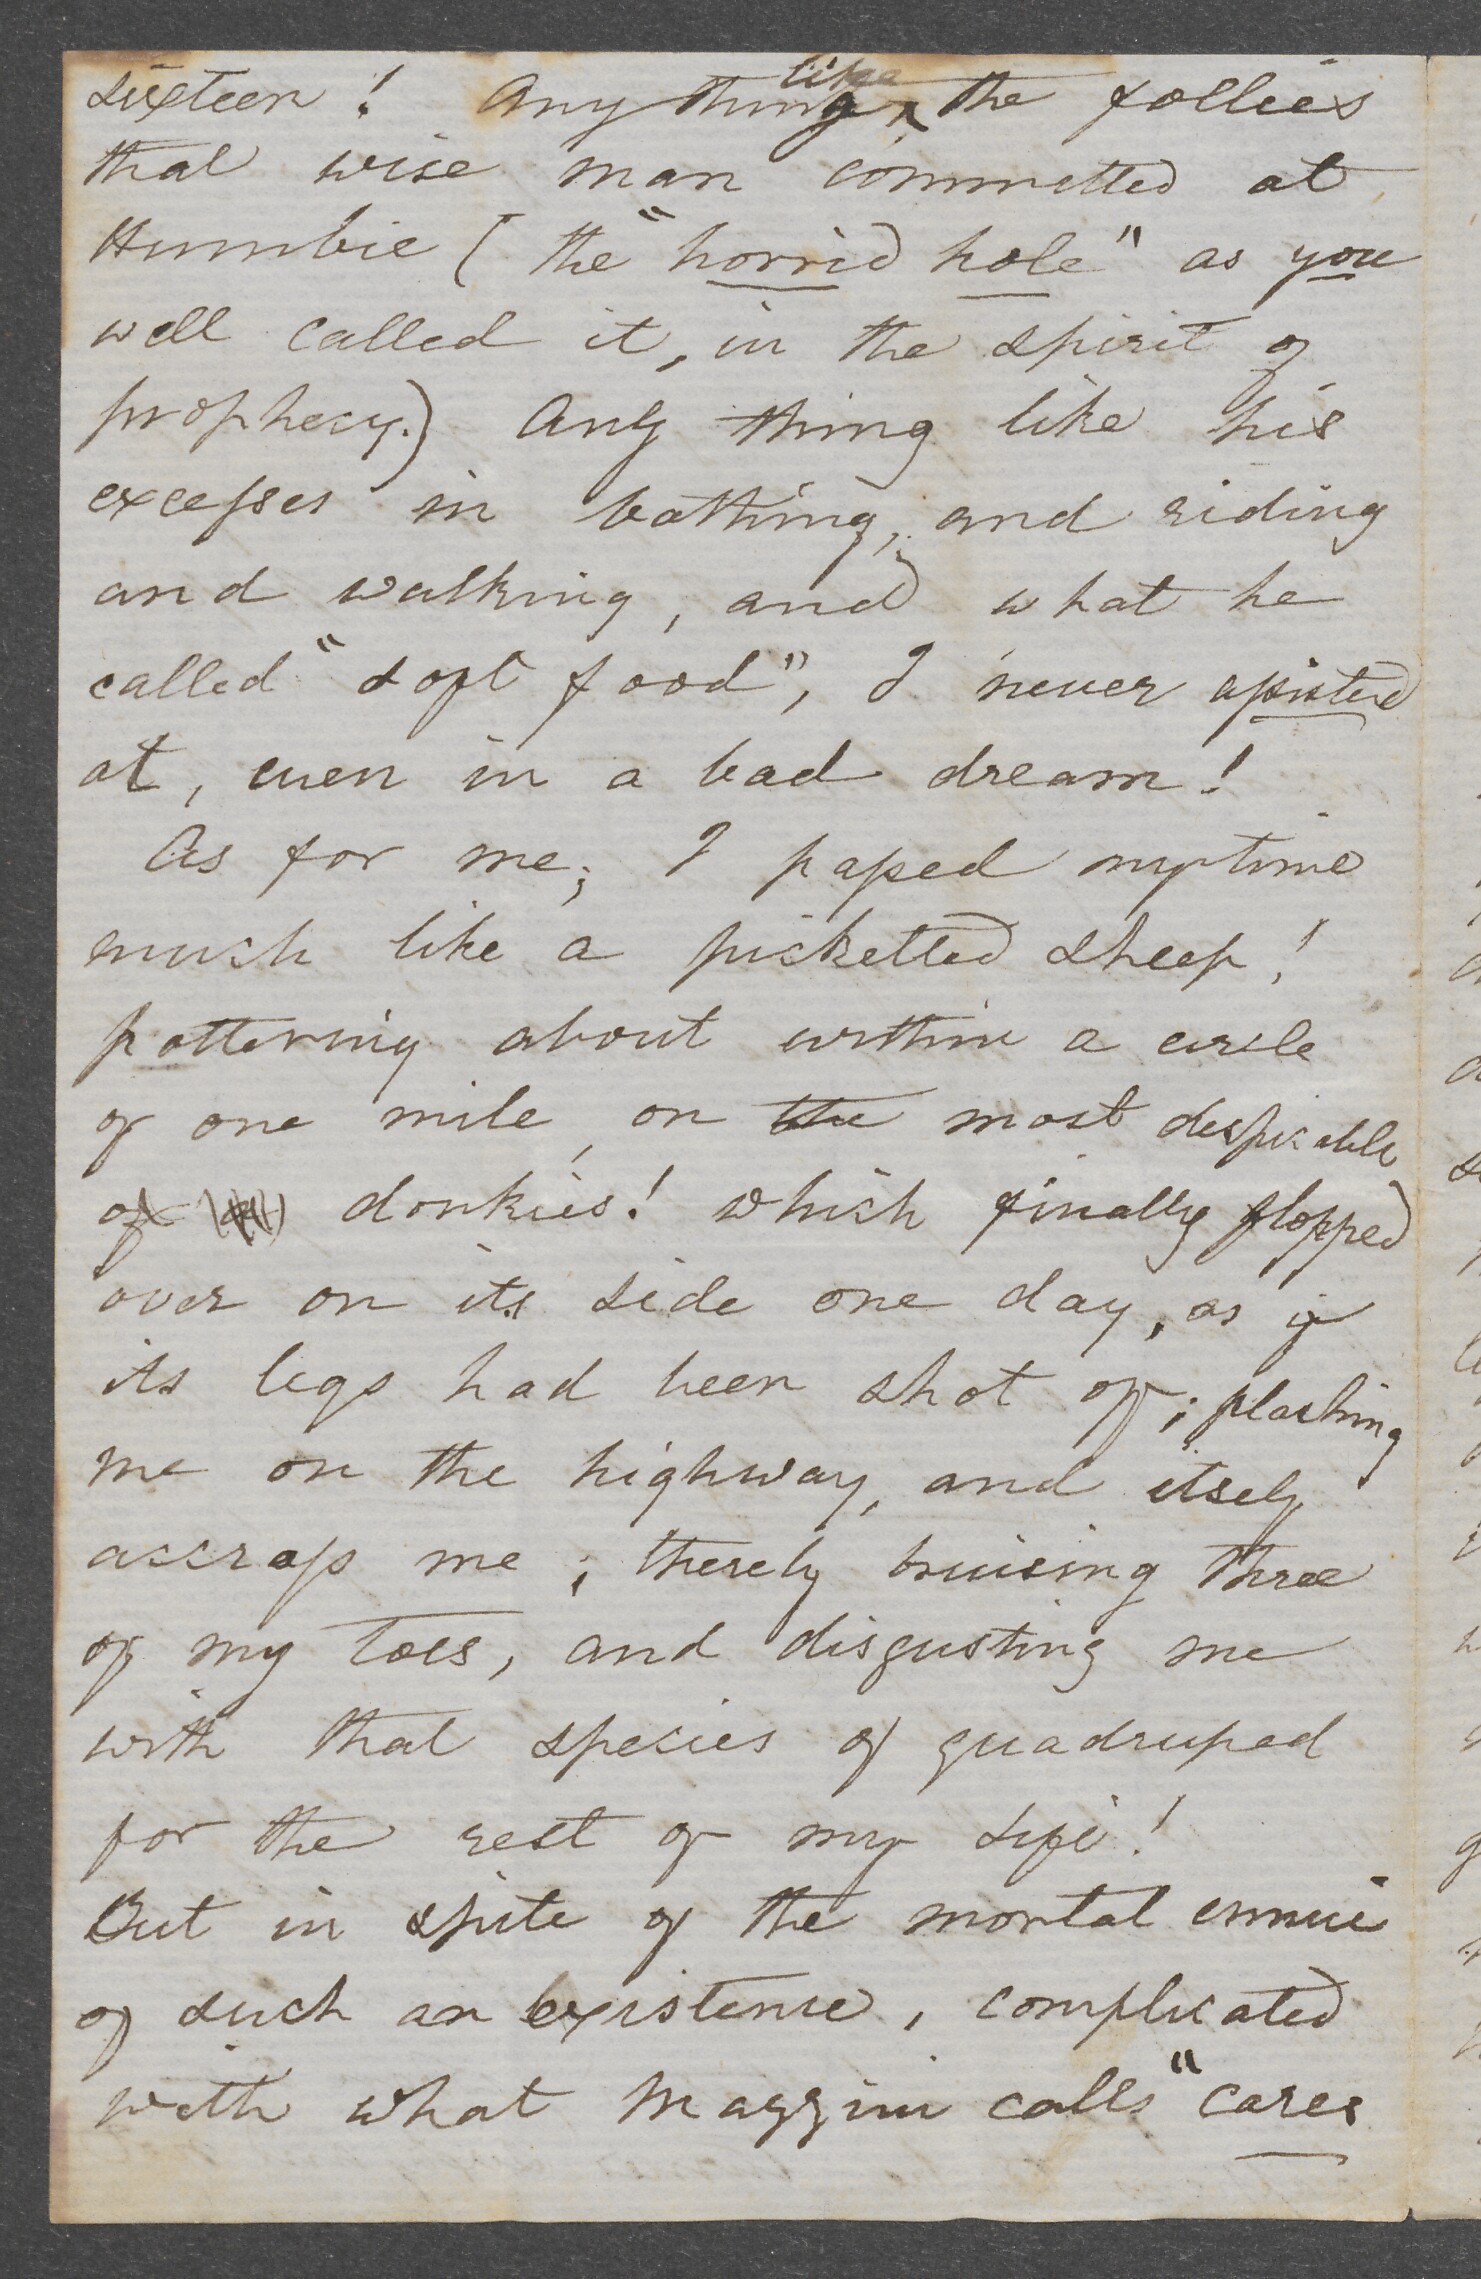 sixteen! Any thing like the follies
that wise man committed at
Humbie (the "horrid hole" as you
well called it, in the spirit of
prophecy.) Any thing like his
excesses in bathing, and riding
and walking, and what he
called "soft food", I never assisted
at, even in a bad dream!
As for me; I passed my time
much like a picketted sheep!
pottering about within a circle
of one mile, on the most despicable
of donkies! which finally flopped
over on its side one day, as if
its legs had been shot off; plashing
me on the highway, and itself
across me; thereby bruising three
of my toes, and disgusting me
with that species of quadruped
for the rest of my life!
But in spite of the mortal ennui
of such an existence, complicated
with what Mazzini calls "cares